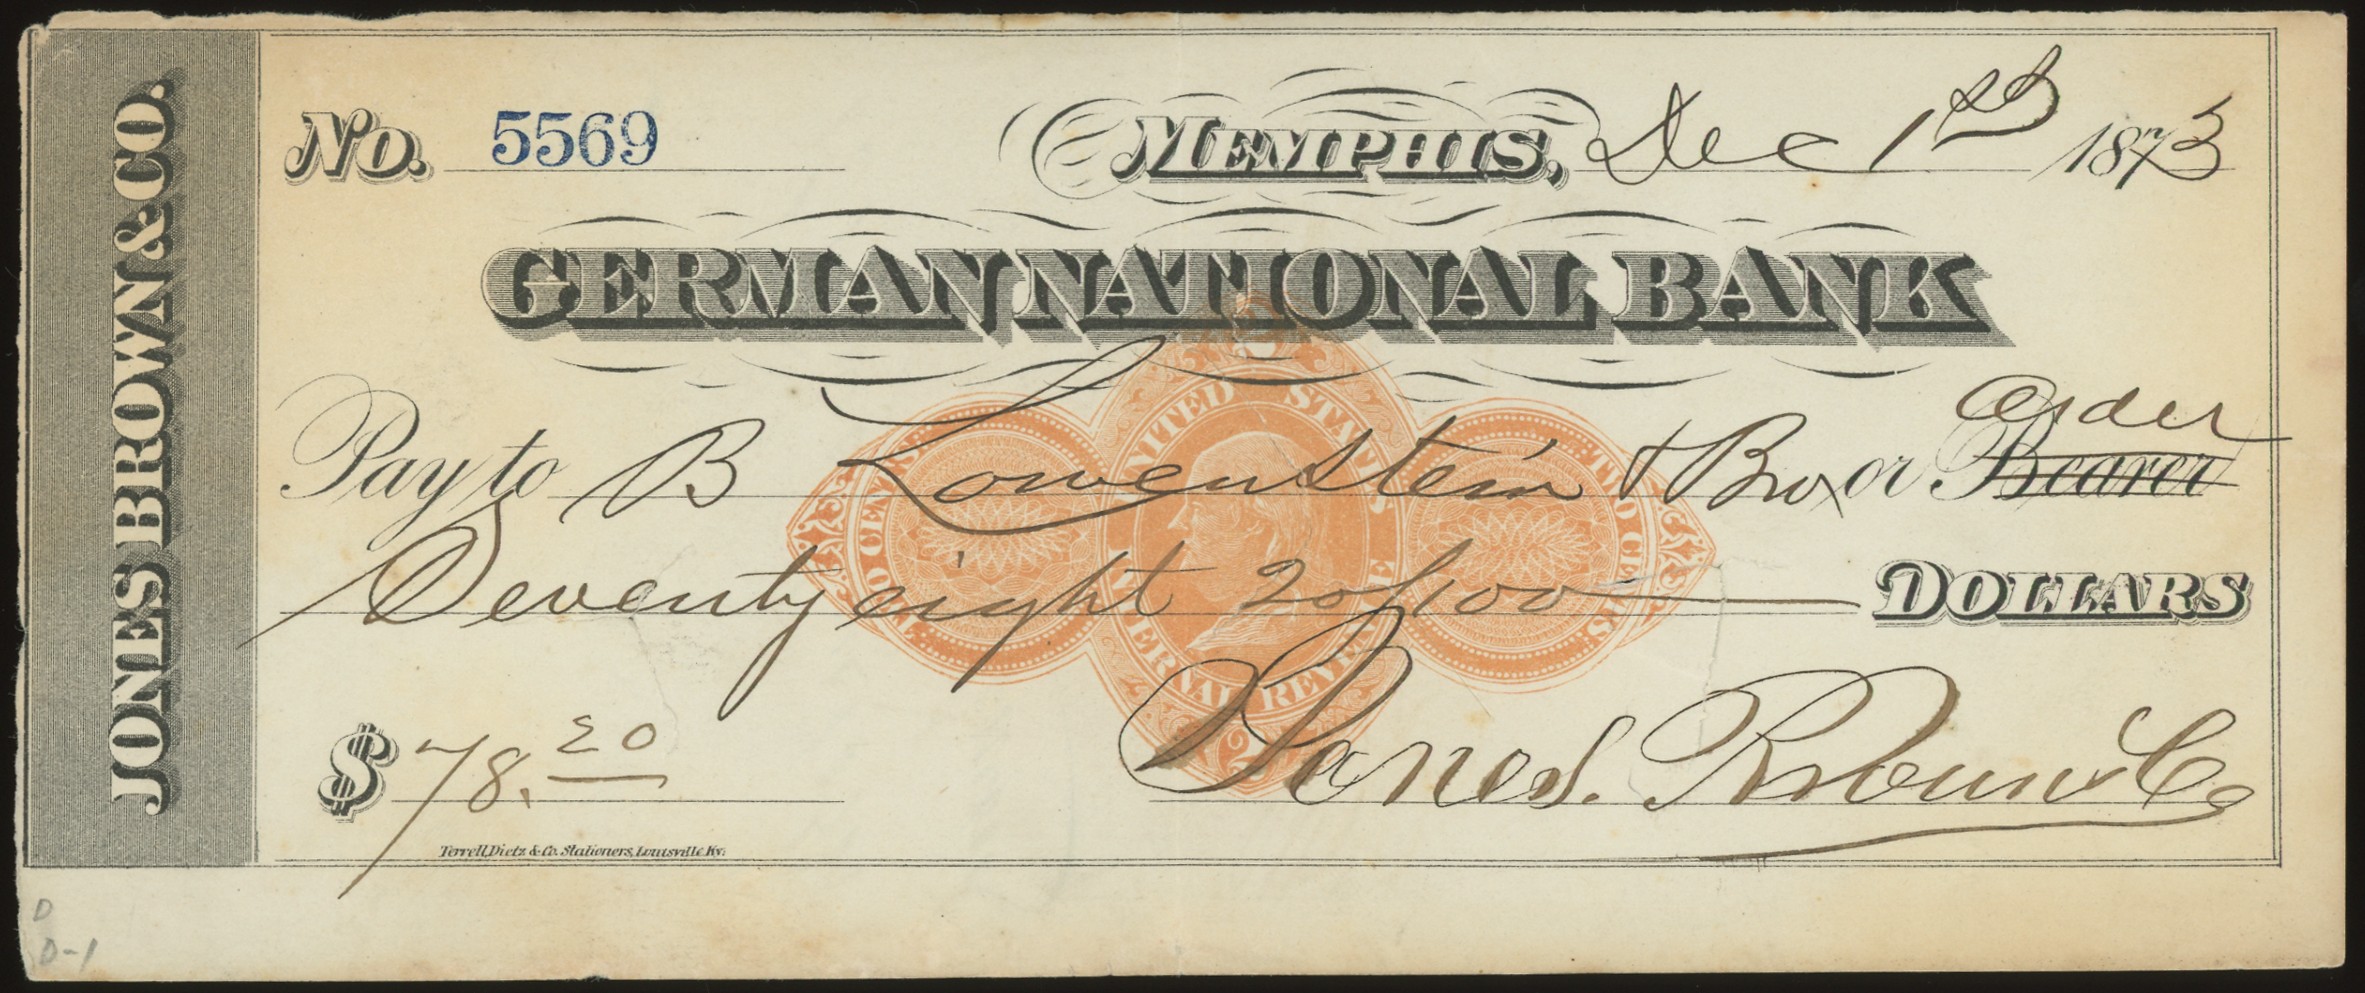 JONES BROWN & CO.
No. 5569
MEMPHIS, Dec 1st 1873
GERMAN NATIONAL BANK
Order
Pay to B Lowenstein & Bro or Bearer
Seventy eight 20/100 DOLLARS
$ 78.20
Jones. Brown & Co
UNITED STATES
INTERNAL REVENUE
TWO CENTS.
TWO CENTS.
2
2
Terrell, Dietz & Co. Stationers, Louisville Ky.
D
D-1